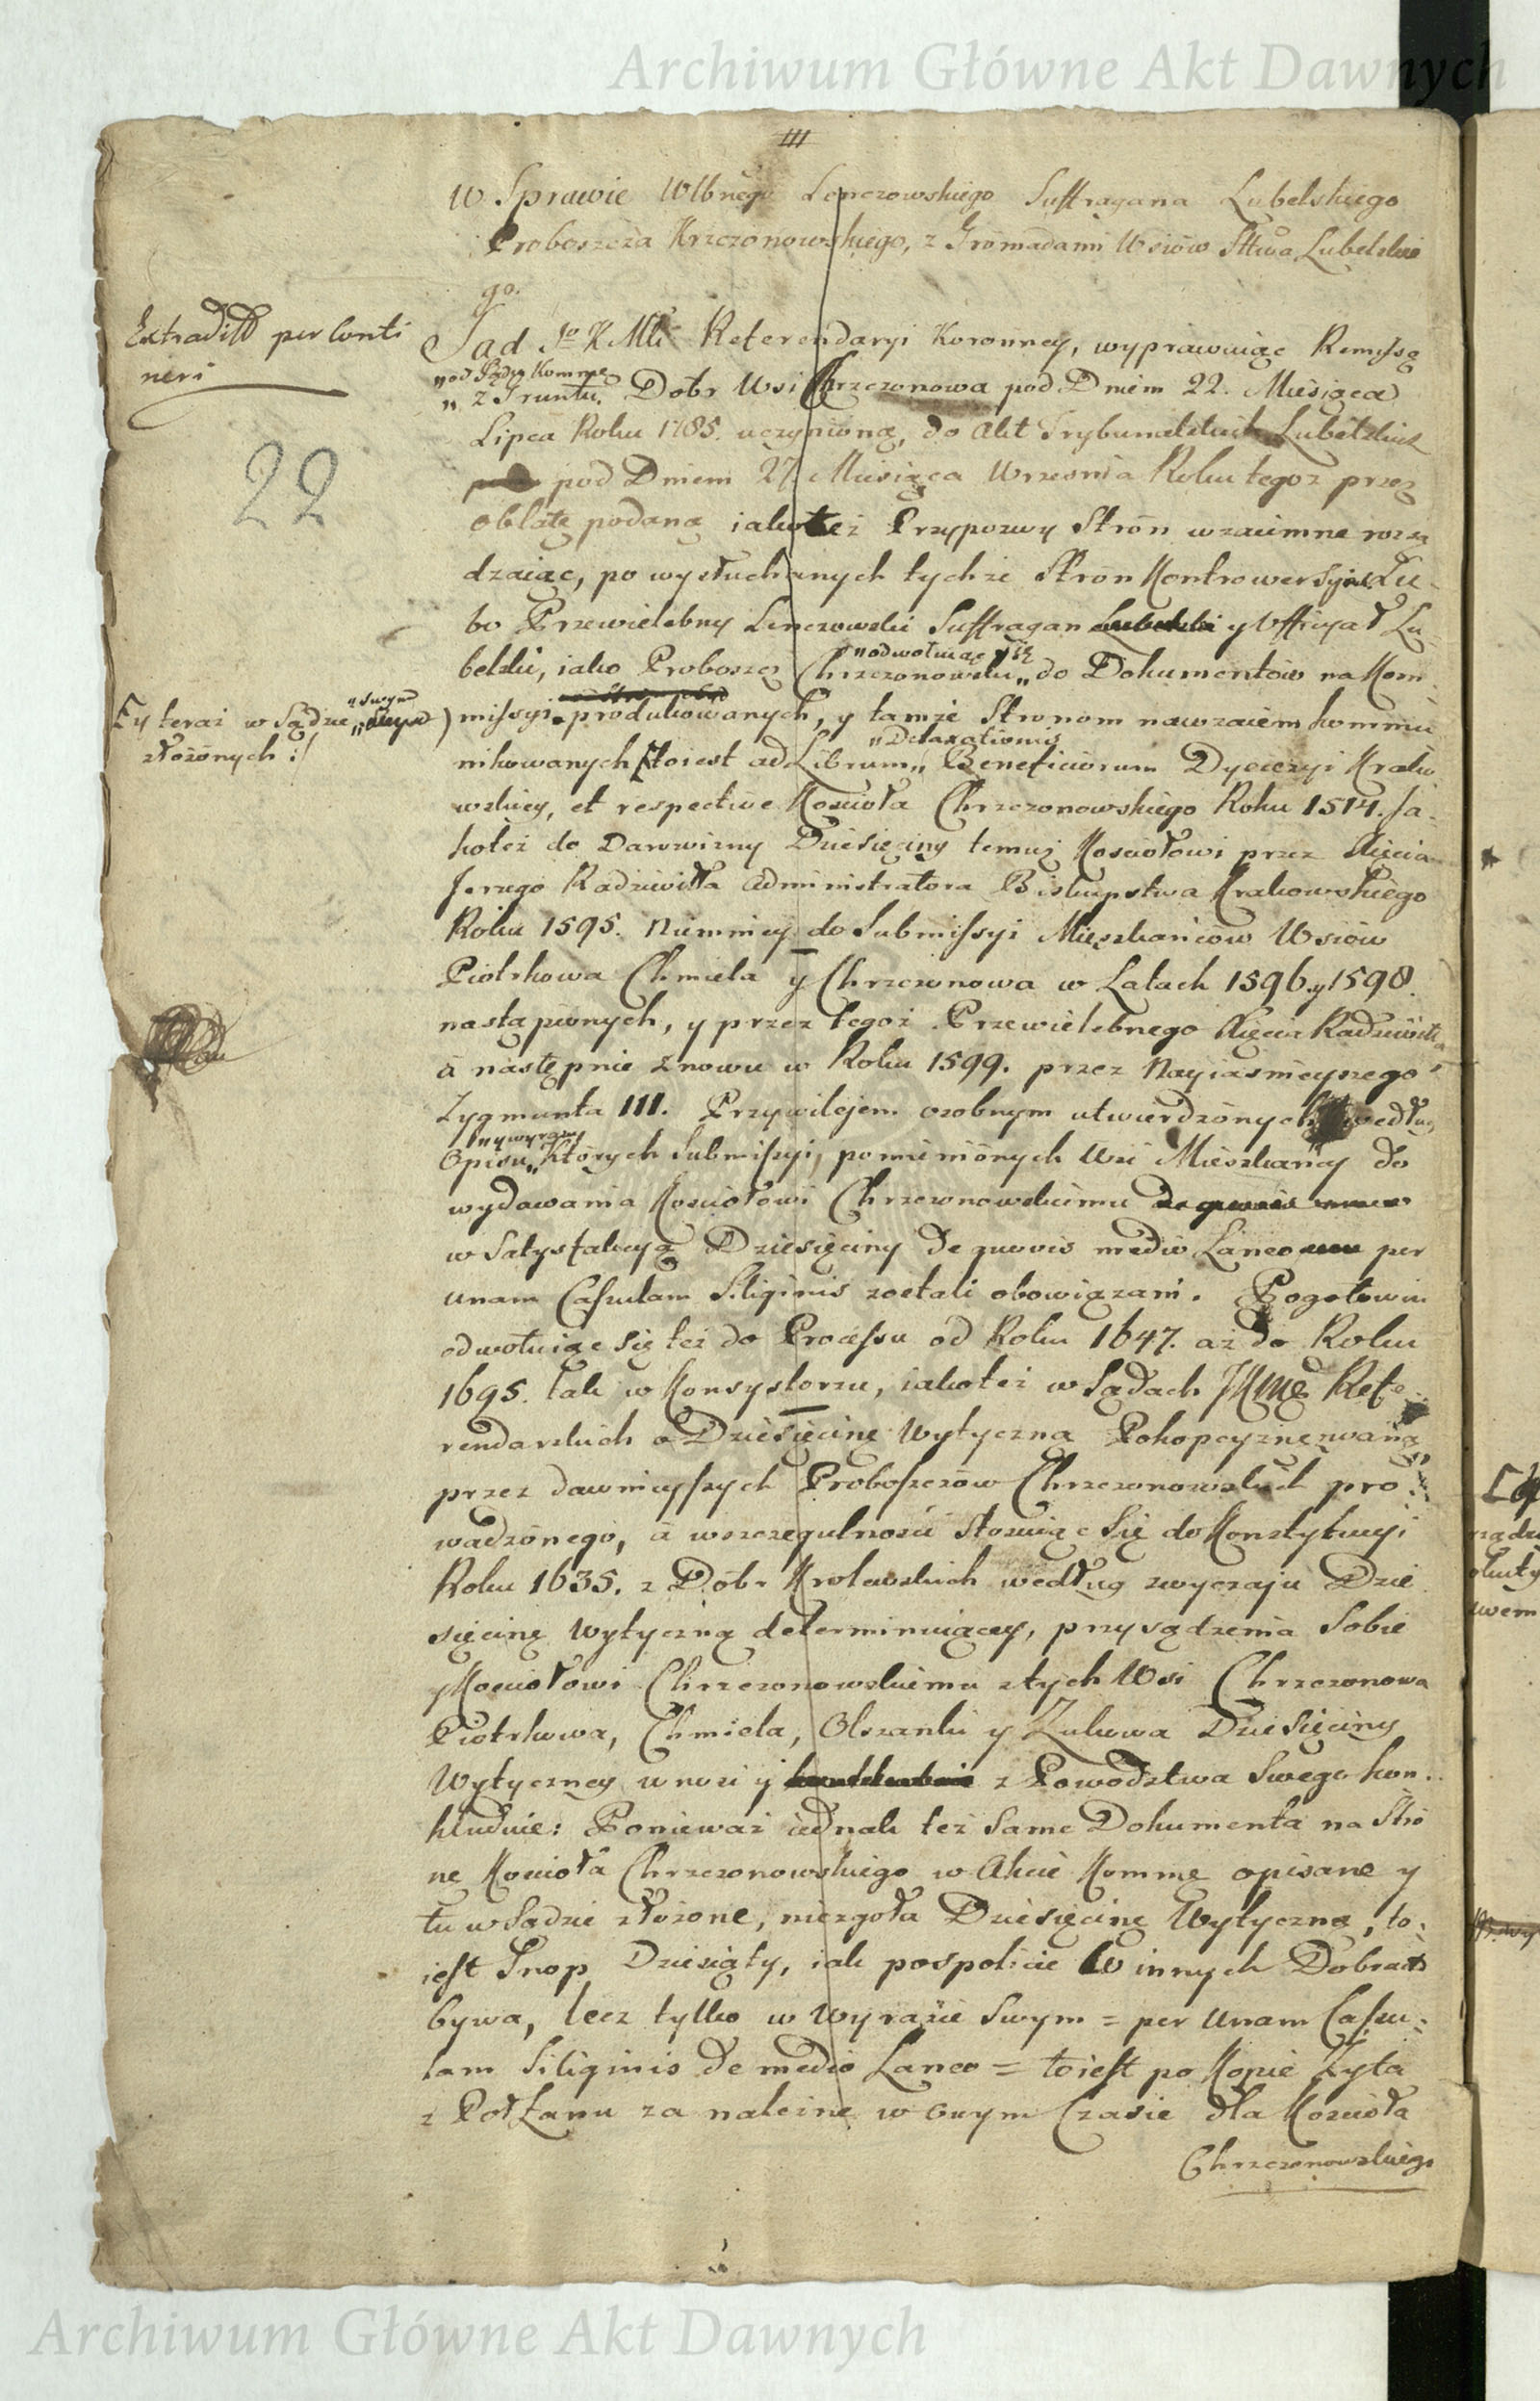 Archiwum Główne Akt Dawnych
III
W Sprawie Wlbnego Lenczowskiego Suffragana Lubelskiego
Proboszcza Krzczonowskiego, z Gromadami Wsiow Sttwa Lubelskie
go.
Extraditt per Conti
neri
22
Sąd Jo K Mci Referendaryi Koronney, wyprawuiąc Remissę
"od Sądu Kommę
" z Gruntu. Dobr Wsi Chrzczonowa pod Dniem 22. Miesiąca
Lipca Roku 1785. uczynioną, do Akt Trybunalskich Lubelskich
pod Dniem 27 Miesiąca Wrzesnia Roku tegoz przez
oblatę podaną iakoteż Przypozwy Strón wzaiemne rozsą
dzaiąc, po wysłuchanych tychże Strón Kontrowersyach. Lu-
bo Przewielebny Lenczowski Suffragan Lubelski y Officyał Lu-
"odwołuiąc się
belski, iako Proboszcz Chrzczonowski" do Dokumentów na Kom-
Ey teraz w Sądzie "swym
złożonych :/
missyi produkowanych, y tamże Stronom nawzaiem kommu
"Detaxationis
nikowanych /toiest ad Librum" Beneficiorum Dyecezyi Krako
wskiey, et respective Kościoła Chrzczonowskiego Roku 1514. Ja-
koteż do Darowizny Dziesięciny temuż Kosciołowi przez Xięcia
Jerzego Radziwiłła Administratora Biskupstwa Krakowskiego
Roku 1595. Niemniey do Submissyi Mieszkańców Wsiów
Piotrkowa Chmiela y Chrzczonowa w Latach 1596. y 1598.
nastąpionych, y przez tegoż Przewielebnego Xięcia Radziwiłła
a następnie znowu w Roku 1599. przez Nayiasnieyszego
Zygmunta III. Przywilejem osobnym utwierdzonych według
"y wyrazu
Opisu" których Submissyi, pomienionych Wsi Mieszkańcy do
wydawania Kosciołowi Chrzczonowskiemu
w Satysfakcyą Dziesięciny de quovis medio Laneo per
unam Cassulam Siliginis zostali obowiązani. Pogotowiu
odwołuiąc się też do Processu od Roku 1647. aż do Roku
1695. tak w Konsystorzu, iakoteż w Sądach JKMę Refe-
rendarskich o Dziesięcinę Wytyczną Pokopcyznę zwaną
przez dawnieyszych Proboszczów Chrzczonowskich pro
wadzonego, a wszczegulnosci stosuiąc się do Konstytucyi
Roku 1635. z Dóbr Krolewskich według zwyczaju Dzie
sięcinę Wytyczną determinuiącey, przysądzenia Sobie
y Kosciołowi Chrzczonowskiemu ztych Wsi Chrzczonowa
Piotrkowa, Chmiela, Olszanki y Zukowa Dziesięciny
Wytyczney wnosi y z Powodztwa Swego kon-
kluduie: Ponieważ iednak też same Dokumenta na Stro
nę Koscioła Chrzczonowskiego w Akcie Kommę opisane y
tu w Sądzie złożone, niezgoła Dziesięcinę Wytyczną, to-
iest Snop Dziesiąty, iak pospolicie w innych Dobrach
bywa, lecz tylko w Wyrazie Swym = per Unam Cassu-
lam Siliginis de medio Laneo = toiest po Kopie Zyta
z Pół Łanu za należne w owym Czasie dla Kosciola
Chrzczonowskiego
Archiwum Główne Akt Dawnych